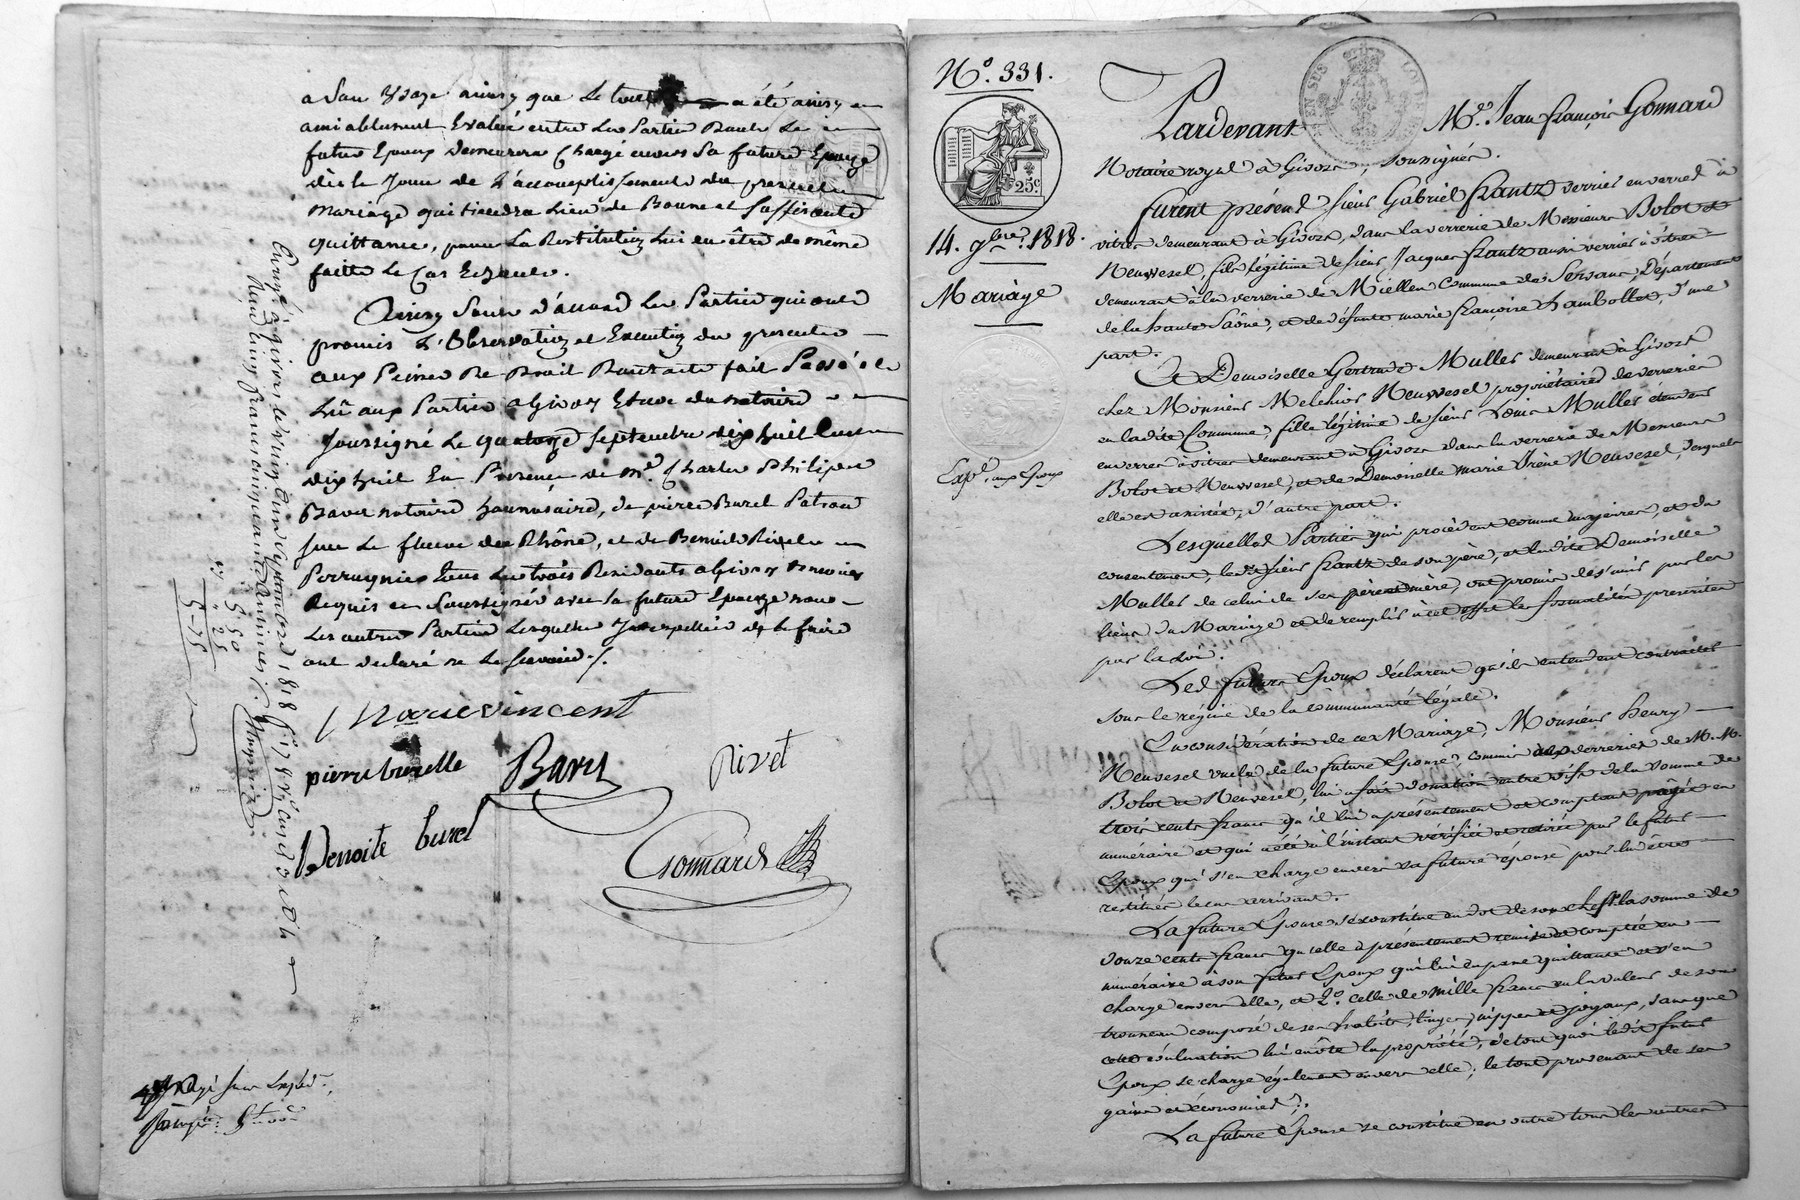 a Son Usage ainsy que le tout a été ainsy
amiablement Evalué entre les Parties Duuel le
futur Epoux demeurera Chargé envers Sa future Epouze
dès le Jour de L'accomplissement du present
mariage qui tiendra Lieu de Bonne et Suffisante
quittance, pour La Restitution Lui en être de même
faitte le Cas Echeant.
Ainsy Sont d'accord les Parties qui ont
promis L'Observation et Execution du present
aux Peines De Droit Dont acte fait Passé
Lû aux Parties a Givors Etude du notaire
Soussigné le quatorze Septembre dix huit Cent
dix huit En Presence de Mr. Charles Philipe
notaire honnoraire, de pierre Burel Patron
Sur le fleuve du Rhône, et de Benoit Rivet
Perruquier tous les trois Residants a Givors temoins
Requis et Soussignés avec la future Epouze non
Les autres Parties Lesquelles Interpellées de le faire
ont declaré ne le Scavoir ./.
Marie vincent
pierre burelle
Rivet
Benoite burel
Gonnard
Enrg. à givors le vingt un Septembre 1818
N.º 331.
25c
14. 9bre. 1818.
Mariage
Expé. aux Epoux
Pardevant Me. Jean françois Gonnard
Notaire royal à Givors, soussigné.
furent présens sieur Gabriel frantz verrier en verre à
vitres demeurant à Givors, dans la verrerie de Messieurs Bolot et
Neuvesel, fils légitime de sieur Jacques frantz aussi verrier à vitres
demeurant à la verrerie de Miellen Commune de Servance, Département
de la haute Saône, et de défunte marie françoise Lambollet, d'une
part.
Et Demoiselle Gertrude Muller demeurant à Givors
chez Monsieur Melchior Neuvesel propriétaire de verreries
en ladite Commune, fille légitime de sieur Louis Muller étendeur
en verres à vitres demeurant à Givors dans la verrerie de Messieurs
Bolot et Neuvesel, et de Demoiselle marie Irène Neuvesel, desquels
elle est assistée, d'autre part.
Lesquelles Parties qui procèdent comme majeures, et du
consentement, ledit sieur frantz de son père, et ladite Demoiselle
Muller de celui de ses père et mère, ont promis de s'unir par les
liens du Mariage et de remplir à cet effet les formalités prescrites
par la Loi.
Les futurs Epoux déclarent qu'ils entendent contracter
sous le régime de la communauté légale.
En considération de ce Mariage, Monsieur henry
Neuvesel oncle de la future Epouse commis aux verreries de M.M.
Bolot et Neuvesel, lui a fait donation entre vifs de la somme de
trois cents francs qu'il lui a présentement et comptant payée en
numéraire et qui a été à l'instant vérifiée et retirée par le futur
Epoux qui s'en charge envers sa future épouse pour lui être
restituée le cas arrivant.
La future Epouse se constitue en dot de son chef 1.º la somme de
douze cents francs qu'elle a présentement remise et comptée en
numéraire à son futur Epoux qui lui en passe quittance et s'en
charge envers elle, et 2.º celle de mille francs en la valeur de son
trousseau composé de ses habits, linges, nippes et joyaux, sans que
cette évaluation lui en ôte la propriété, de tout quoi ledit futur
Epoux se charge également envers elle; le tout provenant de ses
gains et économies.
La future Epouse se constitue en outre tous les autres